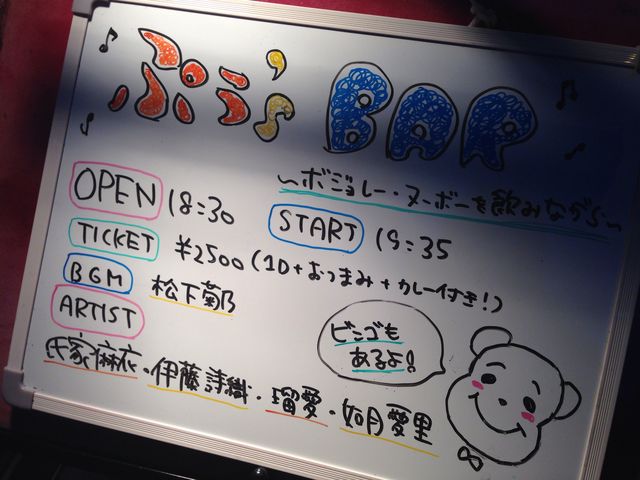 ぷう's BAR
〜ボジョレー・ヌーボーを飲みながら〜
OPEN 18:30 START 19:35
TICKET ¥2500(1D+おつまみ+カレー付き!)
BGM 松下
ARTIST
氏家麻衣・伊藤詩織・瑠愛・如月愛里
ビンゴも
あるよ!